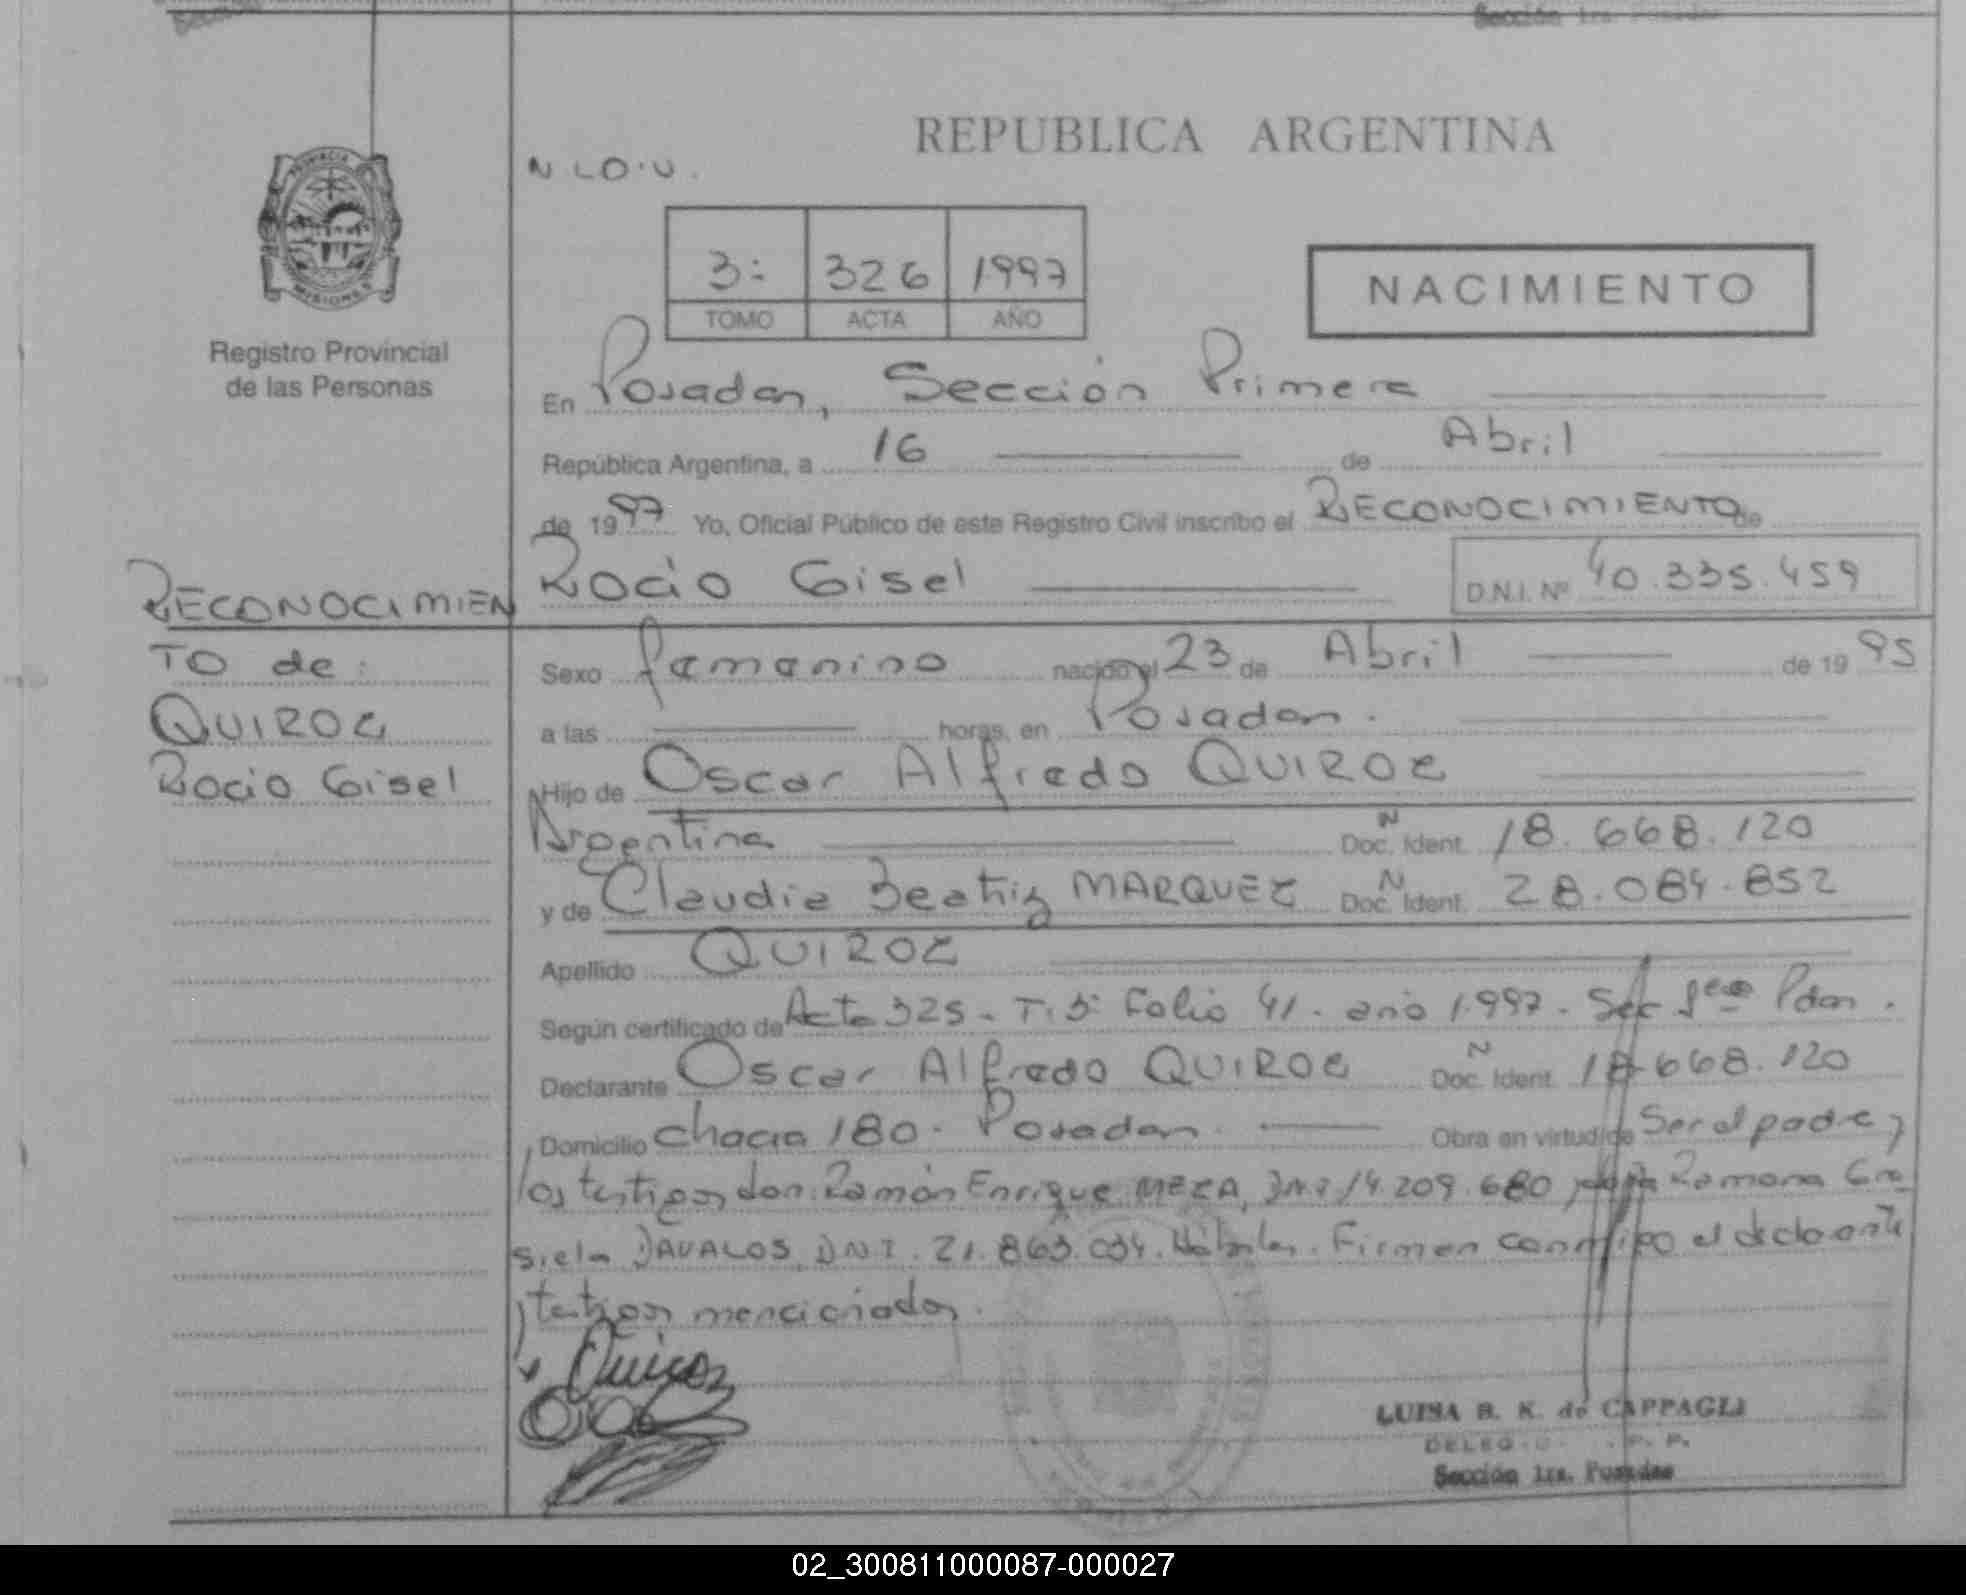 Sección 1ra. Posadas
REPUBLICA ARGENTINA
N L O . U .
PROVINCIA
MISIONES
3: 326 1997
TOMO ACTA AÑO
NACIMIENTO
Registro Provincial
de las Personas
En Posadas, Sección Primera
República Argentina, a 16 de Abril
de 1997 Yo, Oficial Público de este Registro Civil inscribo el RECONOCIMIENTO de
Rocio Gisel D.N.I. Nº 40.335.459
RECONOCIMIEN
TO de:
QUIROZ
Rocio Gisel
Sexo femenino nacido el 23 de Abril de 1995
a las horas, en Posadas.
Hijo de Oscar Alfredo QUIROZ
Argentina Doc. Ident. N 18.668.120
y de Claudia Beatriz MARQUEZ Doc. Ident. N 28.084.852
Apellido QUIROZ
Según certificado de Acta 325 - T. 3: Folio 41 - año 1.997 - Sec 1era Pdas.
Declarante Oscar Alfredo QUIROZ Doc. Ident. N 18.668.120
Domicilio chacra 180. Posadas. Obra en virtud de Ser el padre y
los testigos don Ramón Enrique MEZA, D.N.I 14.209.680 y doña Ramona Gra
siela DAVALOS, D.N.I. 21.863.034. Hábiles. Firman conmigo el declarante
y testigos mencionados.
Quiroz
LUISA B. K. de CAPPAGLI
Sección 1ra. Posadas
02_300811000087-000027